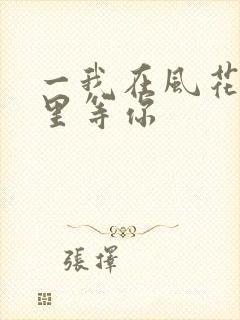 一我在風花
里等你
張擇